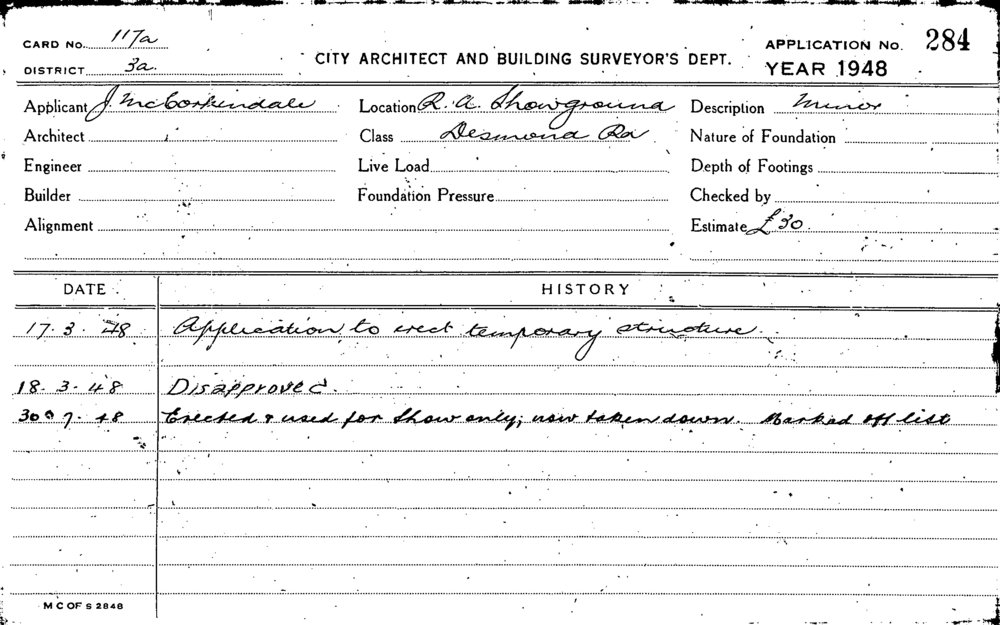 CARD No. 117a
DISTRICT 3a.
CITY ARCHITECT AND BUILDING SURVEYOR'S DEPT.
APPLICATION No. 284
YEAR 1948
Applicant J. McCorkindale Location R. A. Showground Description Minor
Architect Class Desmond Rd Nature of Foundation
Engineer Live Load Depth of Footings
Builder Foundation Pressure Checked by
Alignment Estimate £30
DATE HISTORY
17. 3. 48 Application to erect temporary structure.
18. 3. 48 Disapproved.
30. 7. 48 Erected & used for Show only; now taken down. Marked off list
M C OF S 2848